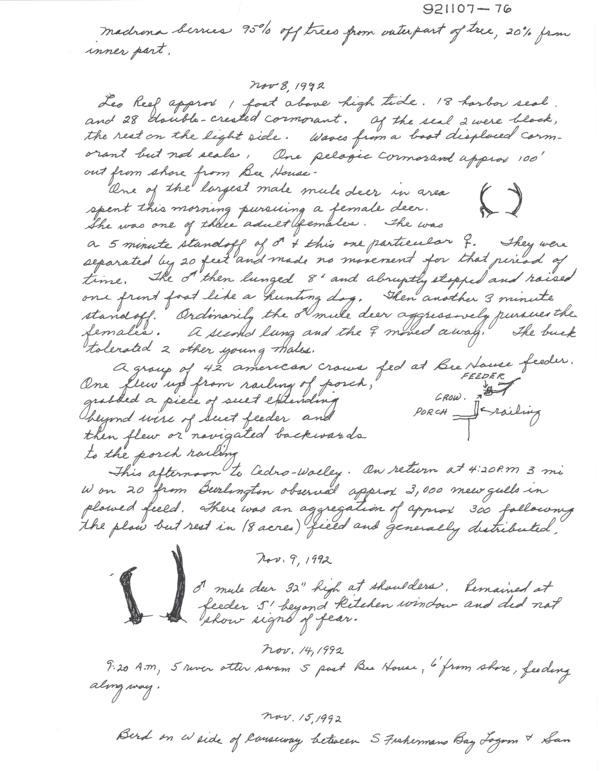 921107-76
Madrona berries 95% off trees from outerpart of tree, 20% from
inner part.
Nov 8, 1992
Leo Reef approx 1 foot above high tide. 18 harbor seal
and 28 double-crested cormorant. Of the seal 2 were black,
the rest on the light side. Waves from a boat displaced corm-
orant but not seals. One pelagic cormorand approx 100'
out from shore from Bee House.
One of the largest male mule deer in area
spent this morning pursuing a female deer.
She was one of three adult females. The was
a 5 minute standoff of ♂ & this one particular ♀. They were
separated by 20 feet and made no movement for that period of
time. The ♂ then lunged 8' and abruptly stopped and raised
one front foot like a hunting dog. Then another 3 minute
standoff. Ordinarily the ♂ mule deer aggressively pursues the
females. A second lung and the ♀ moved away. The buck
tolerated 2 other young males.
A group of 42 american crows fed at Bee House feeder.
One flew up from railing of porch,
grabbed a piece of suet extending
beyond wire of suet feeder and
then flew or navigated backwards
to the porch railing
FEEDER
CROW
PORCH
railing
This afternoon to Cedro-Wolley. On return at 4:20 PM 3 mi
W on 20 from Burlington observed approx 3,000 mew gulls in
plowed field. There was an aggregation of approx 300 following
the plow but rest in (8 acres) field and generally distributed.
Nov. 9, 1992
♂ mule deer 32" high at shoulders. Remained at
feeder 5' beyond kitchen window and did not
show signs of fear.
Nov. 14, 1992
9:20 A.M, 5 river otter swam S past Bee House, 6' from shore, feeding
along way.
Nov. 15, 1992
Bird on W side of Causeway between S Fishermans Bay Lagoon & San